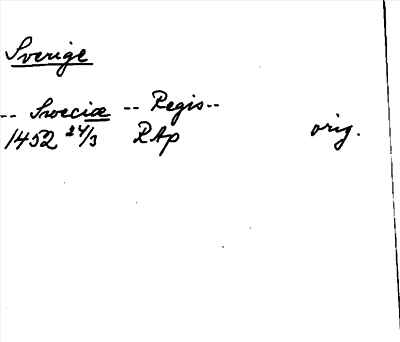 Sverige
-- Sveciæ -- Regis--
1452 24/3 RAp orig.